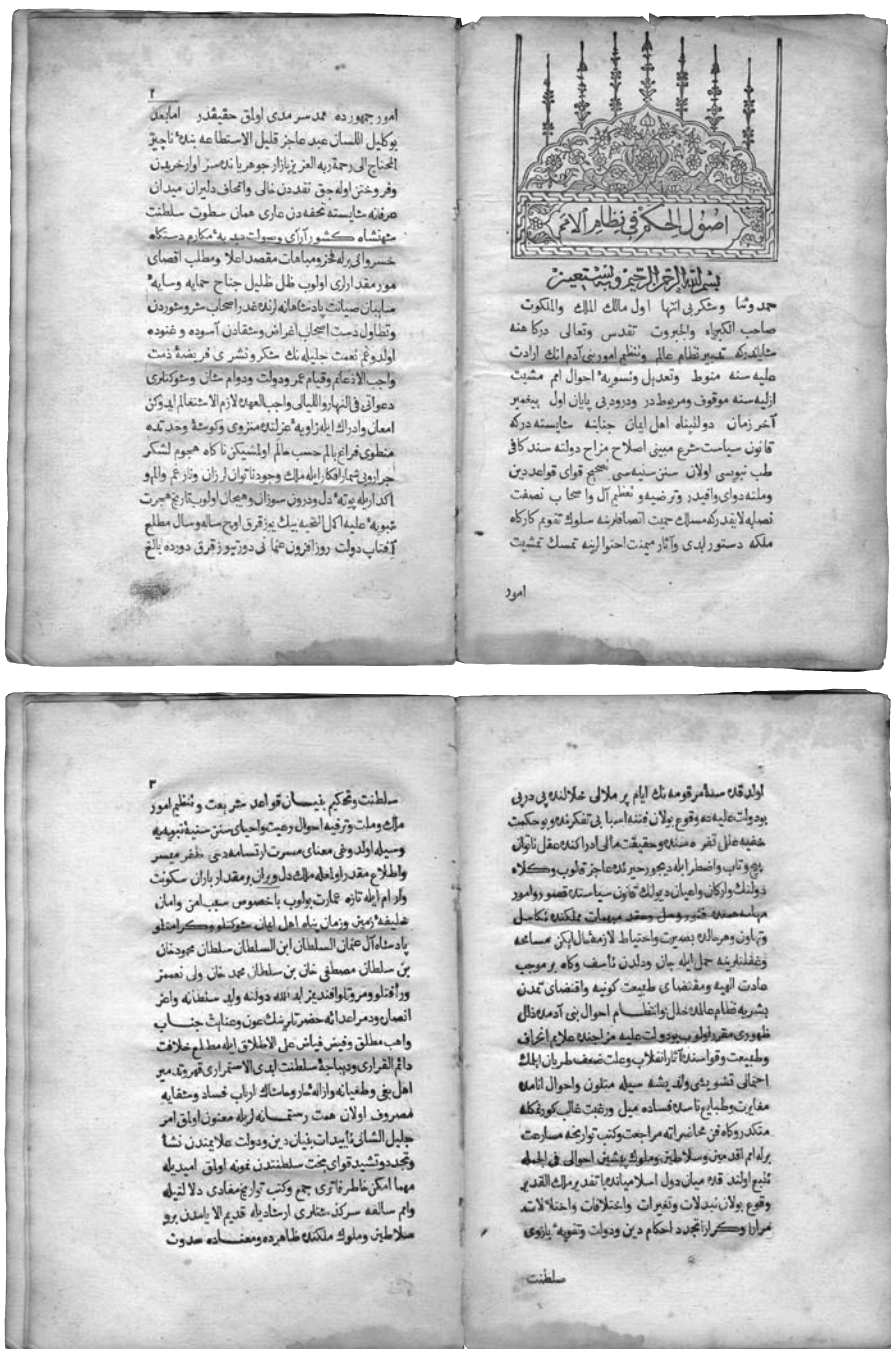 اصول الحكم فى نظام الامم
بسم الله الرحمن الرحيم وبه نستعين
حمد وثنا وشكر بى انتها اول مالك الملك والملكوت
صاحب الكبرياء والجبروت تقدس وتعالى دركاهنه
شايانذركه تدبير نظام عالم وتنظيم امور بنى آدم انك ارادت
عليه سنه منوط وتعديل وتسويهٔ احوال امم مشيت
ازليه سنه موقوف ومربوطدر ودرود بى پايان اول پيغمبر
آخر زمان دولتپناه اهل ايمان جنابنه شايسته دركه
قانون سياست شرع مبينى اصلاح مزاج دولته سند كافى
طب نبوسى اولان سنن سنيه سى تصحيح قواى قواعد دين
وملته دواى وافيدر وترضيه وتعظيم آل واصحاب نصفت
نصابه لايقدركه مسالك حميت اتصافلرينه سلوك تقويم كاركاه
ملكه دستور ابدى وآثار ميمنت احتوالرينه تمسك تمشيت
امور
٢
امور جمهورده ممد سرمدى اولمق حقيقدر امابعد
بوكليل اللسان عبد عاجز قليل الاستطاعه بندهٔ ناچيز
المحتاج الى رحمة ربه العزيز بازار جوهريانده سزاوار خريدن
وفروختن اوله جق نقددن خالى واتحاف دليران ميدان
عرفانه شايسته تحفه دن عارى همان سطوت سلطنت
شهنشاه كشورآراى وصولت دبدبهٔ مكارم دستكاه
خسروانى برله فخر ومباهات مقصد اعلا ومطلب اقصاى
مور مقدارارى اولوب ظل ظليل جناح حمايه وسايهٔ
سايبان صيانت پادشاهانه لرنده غدر اصحاب شر وشوردن
وتطاول دست اصحاب اغراض وشقادن آسوده وغنوده
اولدوغم نعمت جليله نك شكر ونشرى فريضهٔ ذمت
واجب الاذعانم وقيام عمر ودولت ودوام شان وشوكتلرى
دعواتى فى النهار والليالى واجب العهدهٔ لازم الاشتغالم ايدوكن
امعان وادراك ايله زاويهٔ عزلتده منزوى وكوشهٔ وحدتده
منطوى فراغ بالم حسب حالم اولمشيكن ناكاه هجوم لشكر
جرار بى شمار افكار ايله ملك وجود ناتوان لرزان ونار غم والم و
اكدار ايله پوتهٔ دل ودرون سوزان وهيجان اولوب تاريخ هجرت
نبويهٔ عليه اكمل التحيه بيك يوز قرق اوچ ساله وسال مطلع
آفتاب دولت روز افزون عثمانى درتيوز قرق دورده بالغ
اولدقده سنهٔ مرقومه نك ايام پر ملالى خلالنده پى درپى
بو دولت عليه ده وقوع بولان فتنه اسبابى تفكرنده وبو حكمت
خفيه علل تفرهسنده وحقيقت مالى ادراكنده عقل ناتوان
پيچ وتاب واضطراب ايله ديجور حيرتده عاجز قالوب وكلاء
دولتك واركان واعيان ديوانك قانون سياستده قصور وامور
مهامه سنده فتور وحل وعقد مبهمات مملكتده تكاسل
وتهاون وهر حالده بصيرت واحتياط لازمهٔ حال ايكن مسامحه
وغفلتلرينه حمل ايله جان ودلدن تأسف وكاه بر موجب
عادت الهيه ومقتضاى طبيعت كونيه واقتضاى تمدن
بشريه نظام عالمده خلل وانتظام احوال بنى آدمده زلل
ظهورى مقرر اولوب بو دولت عليه مزاجنده علايم انحراف
وطبيعت وقواسنده آثار انقلاب وعلت ضعف طريان ايلمك
احتمالى تشويشى وانديشه سيله متلون واحوال انامده
مغايرت وطبايع ناسده فساده ميل ورغبت غالب كورنمكله
متكدر وكاه فن محاضراته مراجعت وكتب تواريخه مسارعت
برله امم اقدمين وسلاطين وملوك پيشين احوالى فى الجمله
تتبع اولندقده ميان دول اسلاميانده بتقدير ملك القدير
وقوع بولان تبدلات وتغيرات واختلافات واختلالات
مرارا وكرارا تجدد احكام دين ودولت وتقويهٔ بازوى
سلطنت
٣
سلطنت وتحكيم بنيان قواعد شريعت وتنظيم امور
ملك وملت وترفيه احوال رعيت واحياى سنن سنيهٔ نبويه يه
وسيله اولدوغى معناى مسرت ارتسامه دسى ظفر ميسر
واطلاع مقدر اولمغله ملك دل ويران بر مقدار باران سكونت
وآرام ايله تازه عمارت بولوب باخصوص سبب امن وامان
خليفهٔ زمين وزمان پناه اهل ايمان شوكتلو وكرامتلو
پادشاه آل عثمان السلطان ابن السلطان سلطان محمود خان
بن سلطان مصطفى خان بن سلطان محمد خان ولى نعمتمز
ورأفتلو ومروتلو افندمز ايد الله دولته وابد سلطنته واعز
انصاره ودمر اعدائه حضرتلرينك عون وعنايت جناب
واهب مطلق وفيض فياض على الاطلاق ايله مطلع خلافت
دائم القرارى وديباجهٔ سلطنت ابدى الاستمرارى قهر وتدمير
اهل بغى وطغيانه وازالهٔ عار ومآل ارباب فساد وشقايه
مصروف اولان همت رستمانه لريله معنون اولمق امر
جليل الشانى تأييدات بنيان دين ودولت علايمندن نشأ
وتجدد وتشييد قواى بخت سلطنتدن نمونه اولمق اميديله
مهما امكن خاطر فاترى جمع وكتب تواريخ مفادى دلالتيله
وامم سالفه سركذشتلرى ارشاديله قديم الايامدن برو
سلاطين وملوك ملكنده ظاهرده ومعناده حدوث